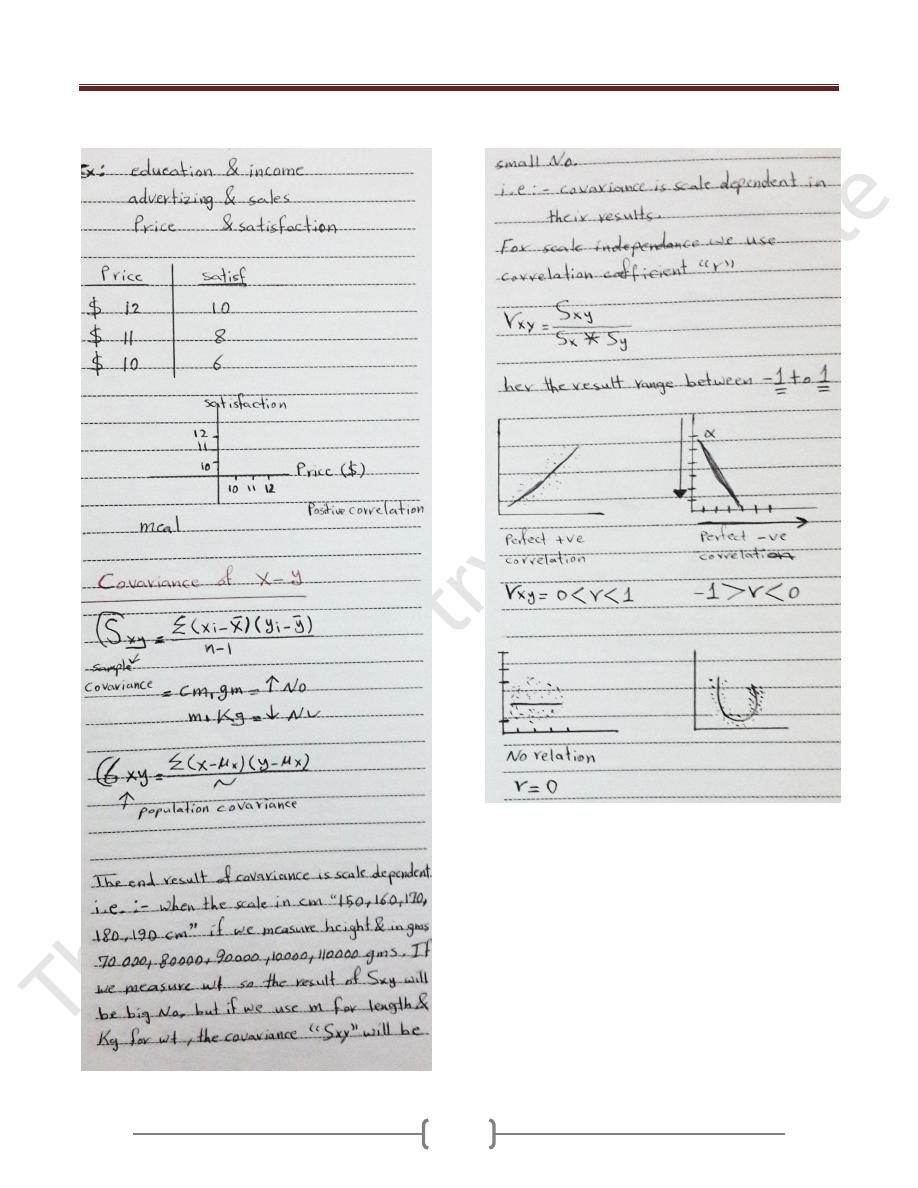 Ex: education & income
advertizing & sales
Price & satisfaction
Price satisf
$ 12 10
$ 11 8
$ 10 6
satisfaction
12
11
10
Price ($)
10 11 12
Positive correlation
Covariance of X-Y
Sxy = Σ(xi-x̄)(yi-ȳ)
n-1
sample
Covariance = cm, gm = ↑ No
m, Kg = ↓ No
б xy = Σ(x-μx)(y-μx)
~
↑ population covariance
The end result of covariance is scale dependent
i.e. :- when the scale in cm "150,160,170,
180,190 cm" if we measure height & in gms
70000, 80000, 90000, 10000, 110000 gms. If
we measure wt so the result of Sxy will
be big No, but if we use m for length &
Kg for wt, the covariance "Sxy" will be
small No.
i.e:- covariance is scale dependent in
their results.
For scale independance we use
correlation coefficient "r"
rxy = Sxy
Sx * Sy
her the result range between -1 to 1
α
Perfect +ve
correlation
Perfect -ve
correlation
rxy = 0<r<1 -1>r<0
No relation
r=0